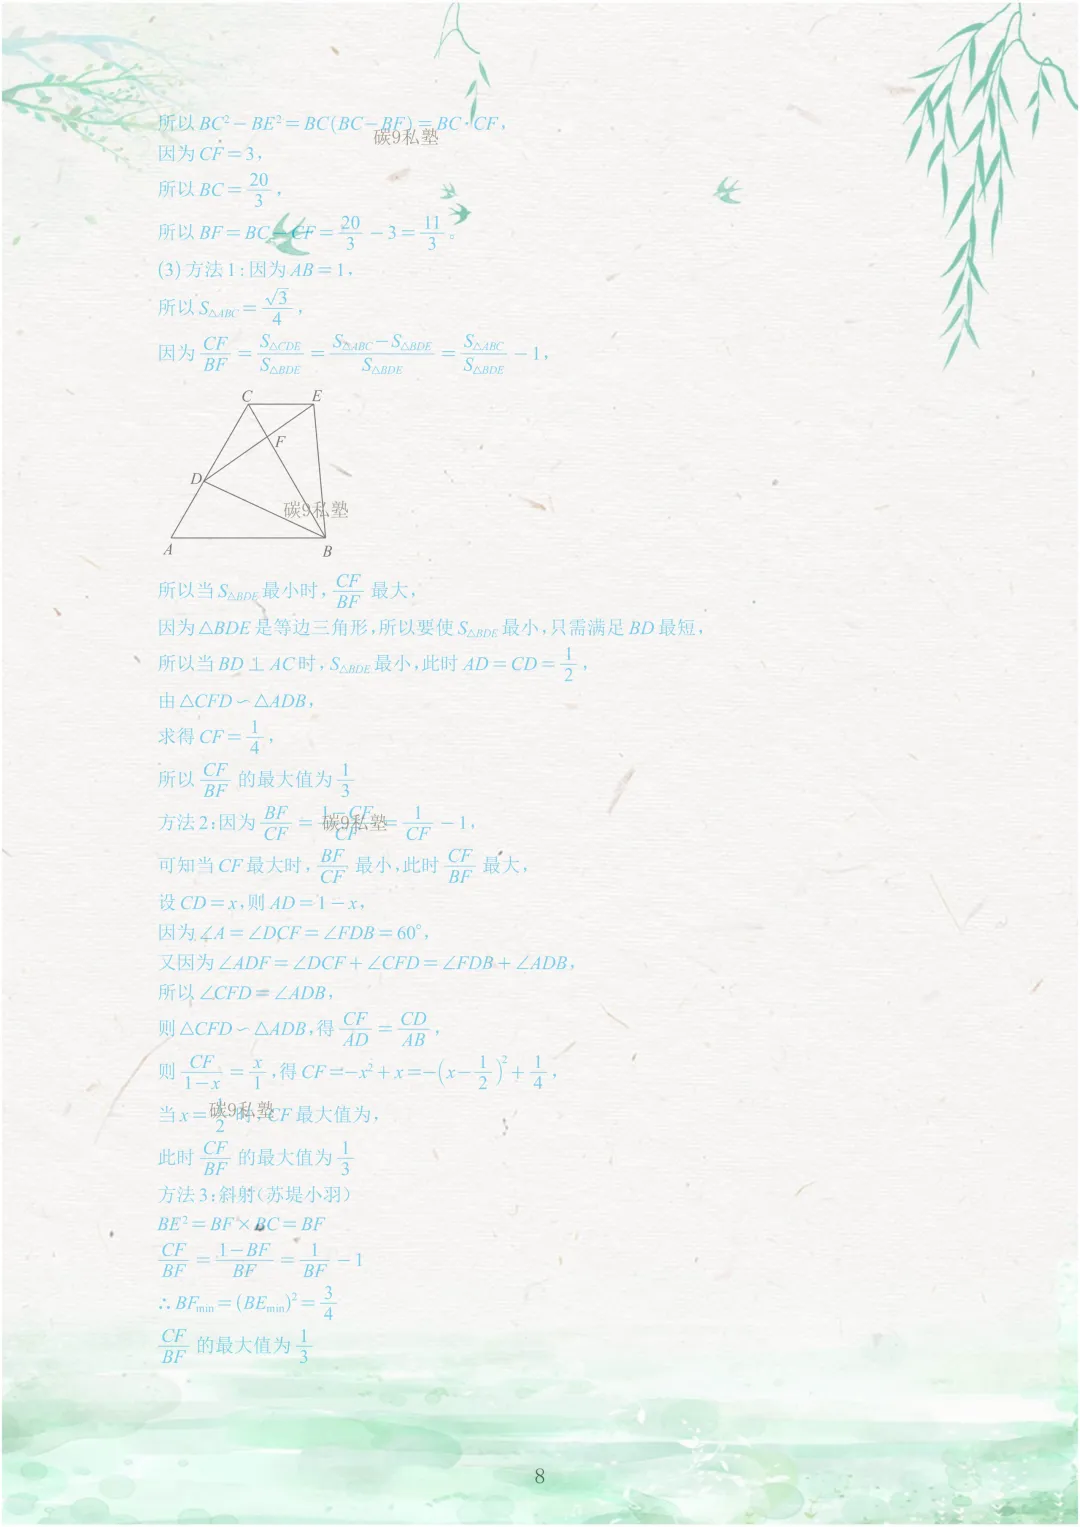 所以BC²-BE²=BC(BC-BF)=BC·CF,
碳9私塾
因为CF=3,
所以BC=20/3,
所以BF=BC-CF=20/3-3=11/3。
(3)方法1:因为AB=1,
所以S△ABC=√3/4,
因为CF/BF=S△CDE/S△BDE=(S△ABC-S△BDE)/S△BDE=S△ABC/S△BDE-1,
C E
F
D
碳9私塾
A B
所以当S△BDE最小时,CF/BF最大,
因为△BDE是等边三角形,所以要使S△BDE最小,只需满足BD最短,
所以当BD⊥AC时,S△BDE最小,此时AD=CD=1/2,
由△CFD∽△ADB,
求得CF=1/4,
所以CF/BF的最大值为1/3
方法2:因为BF/CF=(1-CF)/CF=1/CF-1,
碳9私塾
可知当CF最大时,BF/CF最小,此时CF/BF最大,
设CD=x,则AD=1-x,
因为∠A=∠DCF=∠FDB=60°,
又因为∠ADF=∠DCF+∠CFD=∠FDB+∠ADB,
所以∠CFD=∠ADB,
则△CFD∽△ADB,得CF/AD=CD/AB,
则CF/(1-x)=x/1,得CF=-x²+x=-(x-1/2)²+1/4,
当x=1/2时,CF最大值为,
碳9私塾
此时CF/BF的最大值为1/3
方法3:斜射(苏堤小羽)
BE²=BF×BC=BF
CF/BF=(1-BF)/BF=1/BF-1
∴BFmin=(BEmin)²=3/4
CF/BF的最大值为1/3
8